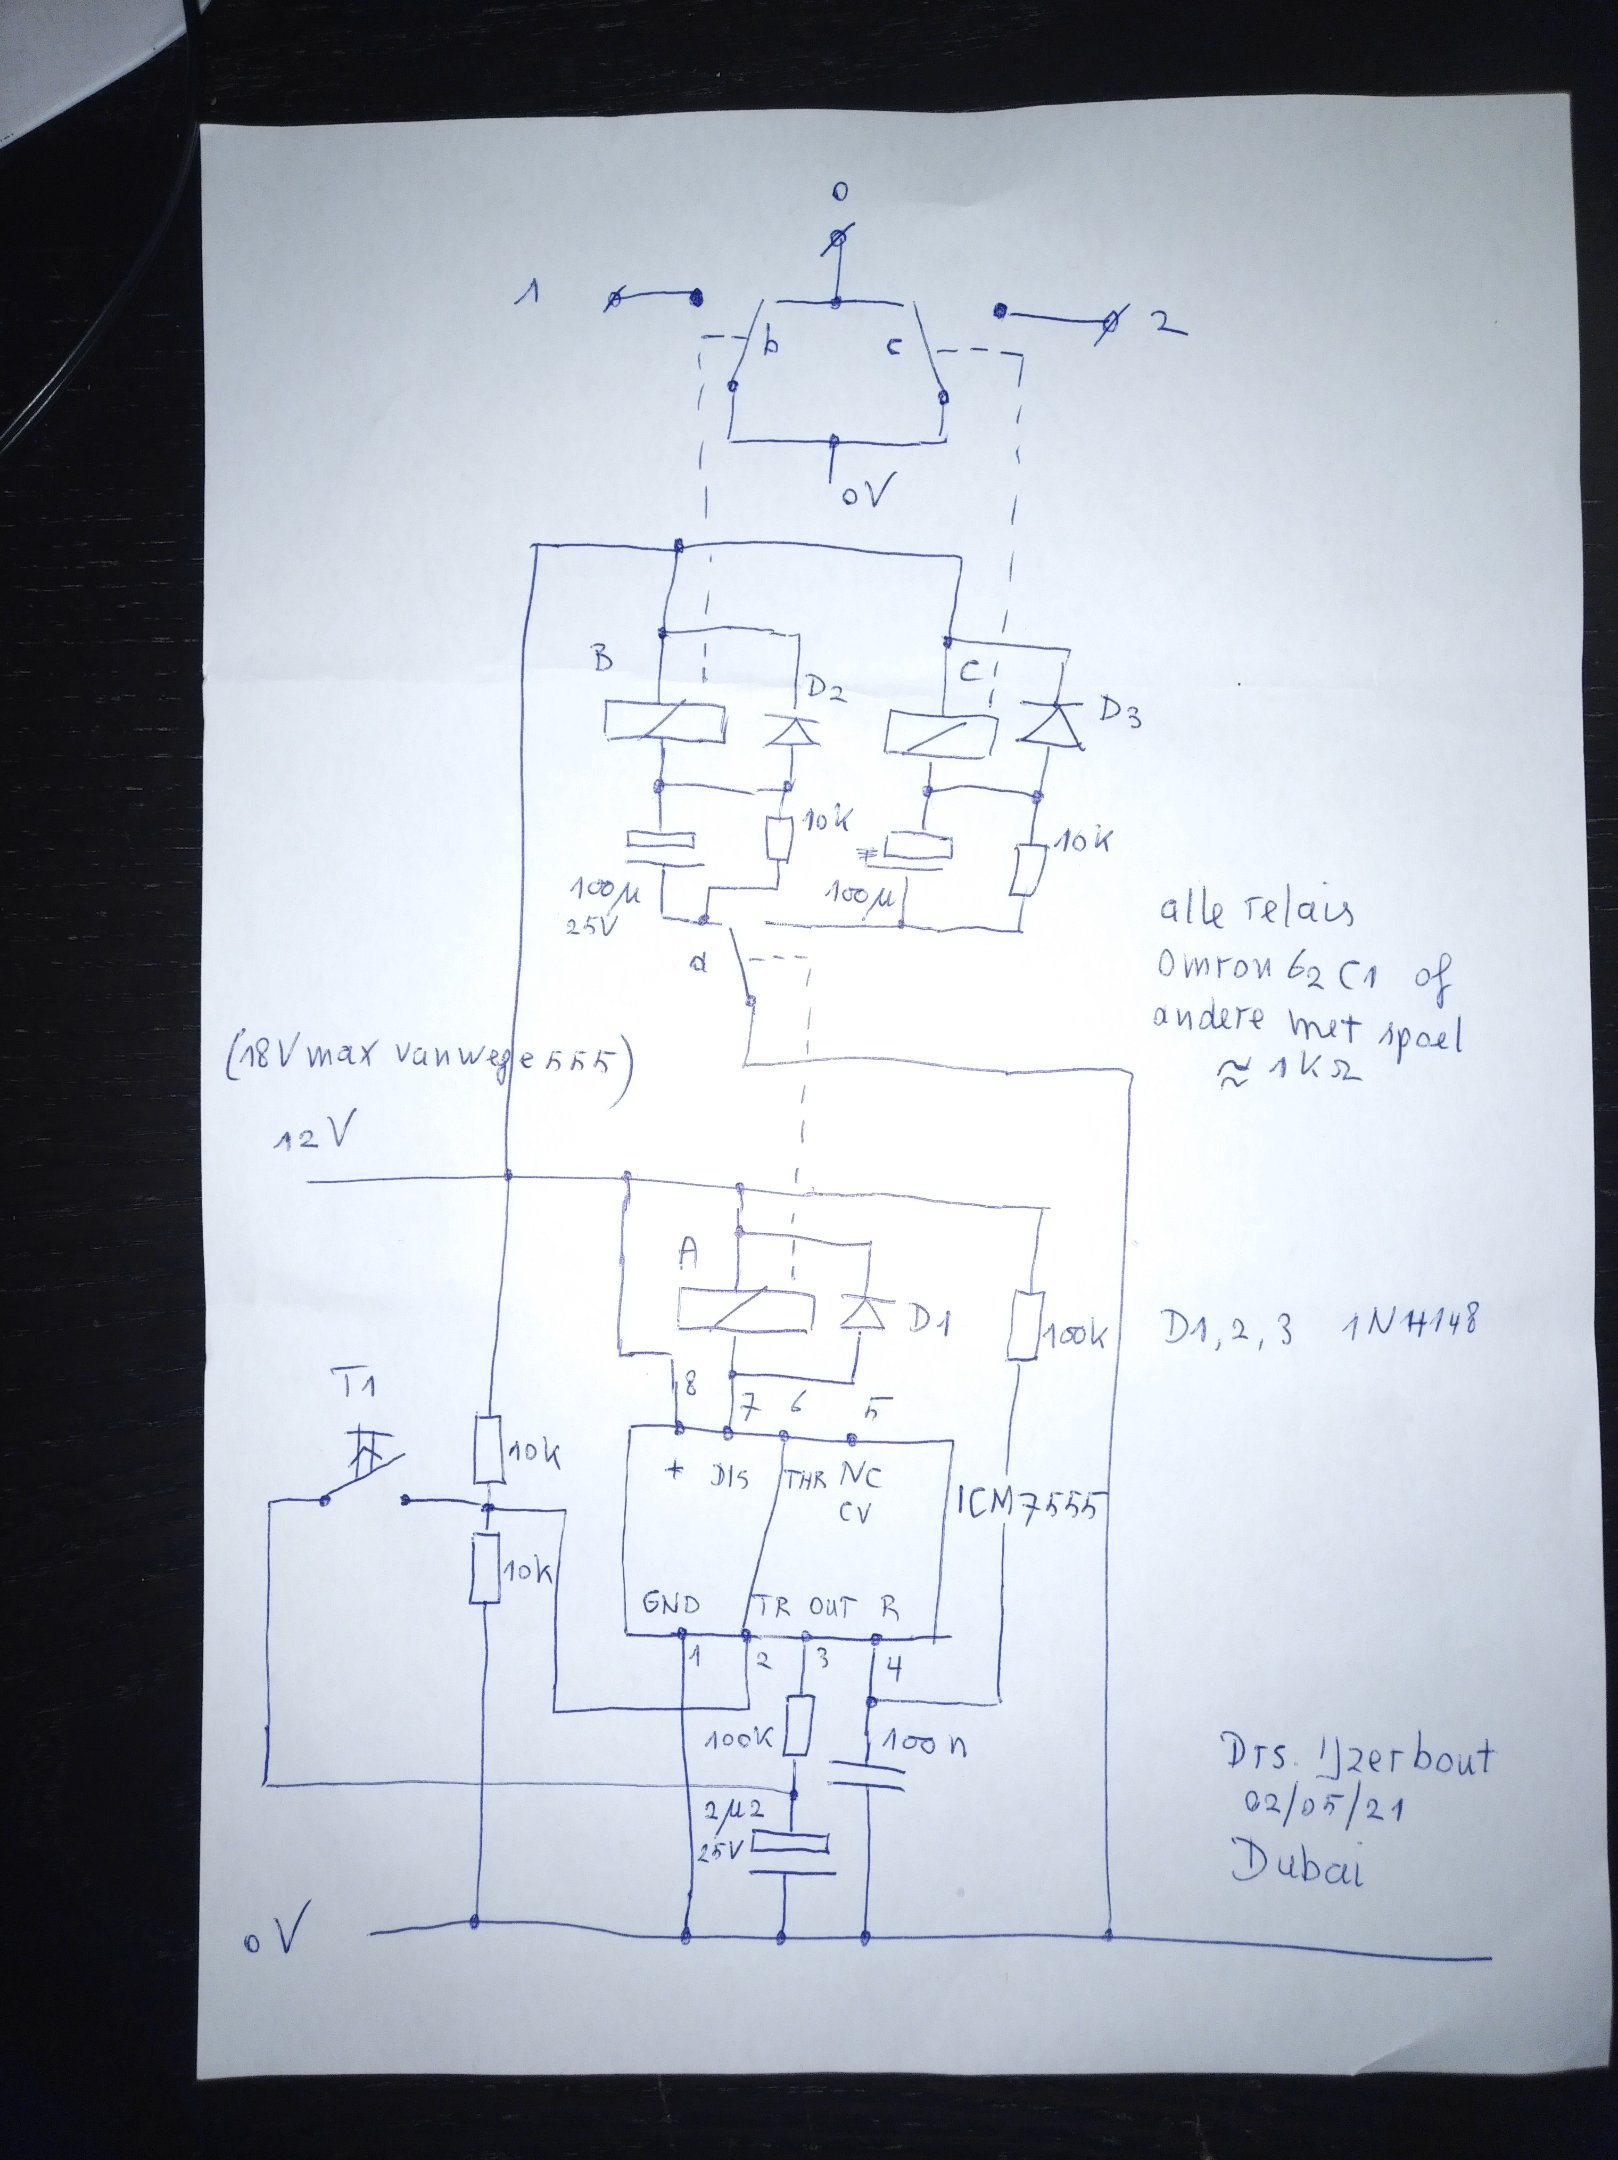 0
1
2
b
c
0V
B
D2
C
D3
10k
10k
100µ
25V
100µ
a
alle relais
Omron G2C1 of
andere met spoel
≈ 1KΩ
(18V max vanwege 555)
12V
A
D1
100k
D1, 2, 3 1N4148
T1
8
7
6
5
10k
+ DIS THR NC
CV
ICM7555
10k
GND TR OUT R
1
2
3
4
100k
100n
2µ2
25V
Drs. IJzerbout
02/05/21
Dubai
0V